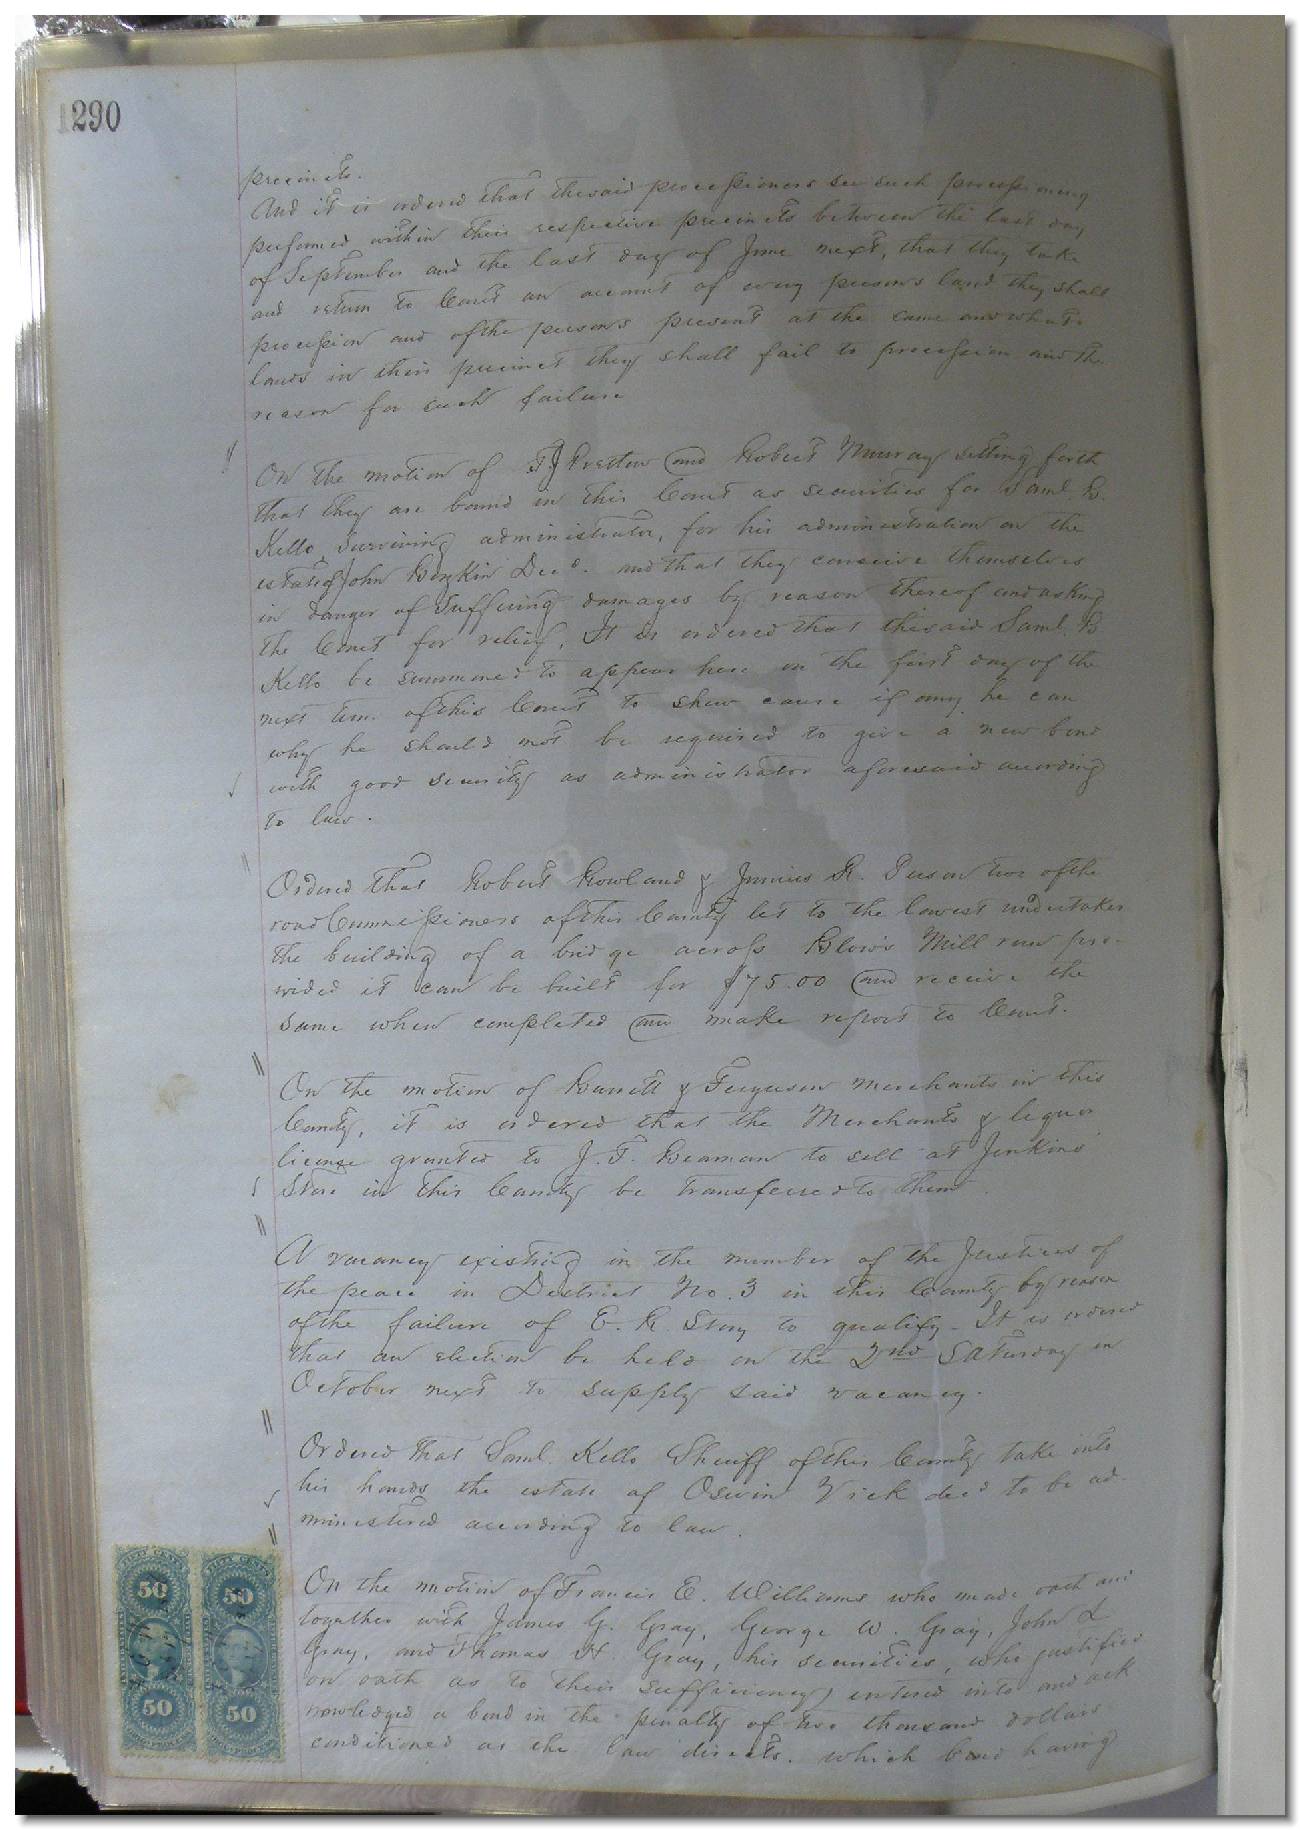 1290
precincts.
And it is ordered that the said processioners see such processioning
performed within their respective precincts between the last day
of September and the last day of June next, that they take
and return to Court an account of every persons land they shall
procession and of the persons present at the same and what
lands in their precinct they shall fail to procession and the
reason for such failure
On the motion of and Robert Murray setting forth
that they are bound in this Court as securities for Saml. B.
Kello, surviving administrator, for his administration on the
estate of John Decd. and that they conceive themselves
in danger of suffering damages by reason thereof and asking
the Court for relief, It is ordered that the said Saml. B
Kello be summoned to appear here on the first day of the
next term of this Court to shew cause if any he can
why he should not be required to give a new bond
with good security as administrator aforesaid according
to law.
Ordered that Robert Rowland & Junius R. two of the
road Commissioners of this County let to the lowest undertaker
the building of a bridge across Blow's Mill run pro-
vided it can be built for $75.00 and receive the
same when completed and make report to Court.
On the motion of Barrett & Ferguson merchants in this
County, it is ordered that the Merchants & liquor
license granted to J. T. Beaman to sell at Jenkins'
Store in this County be transferred to them.
A vacancy existing in the number of the Justices of
the peace in District No. 3 in this County by reason
of the failure of E. R. Story to qualify - It is ordered
that an election be held on the 2nd Saturday in
October next to supply said vacancy.
Ordered that Saml. Kello Sheriff of this County take into
his hands the estate of Oswin Vick decd to be ad-
ministered according to law.
On the motion of Francis E. Williams who made oath and
together with James G. Gray, George W. Gray, John L
Gray, and Thomas H. Gray, his securities, who justified
on oath as to their sufficiency) entered into and ack
nowledged a bond in the penalty of two thousand dollars
conditioned as the law directs. which bond having
FIFTY CENTS FIFTY CENTS
50 50
50 50